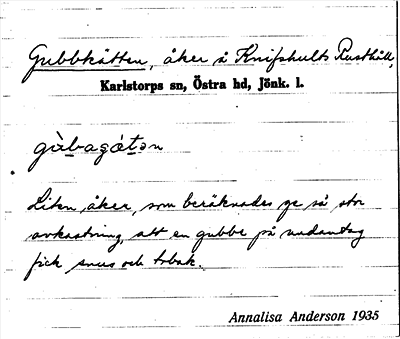 Gubbkåtten, åker å Knifshults Rusthåll,
Karlstorps sn, Östra hd, Jönk. l.
gùbagátən
Liten åker, som beräknades ge så stor
avkastning, att en gubbe på undantag
fick snus och tobak.
Annalisa Anderson 1935